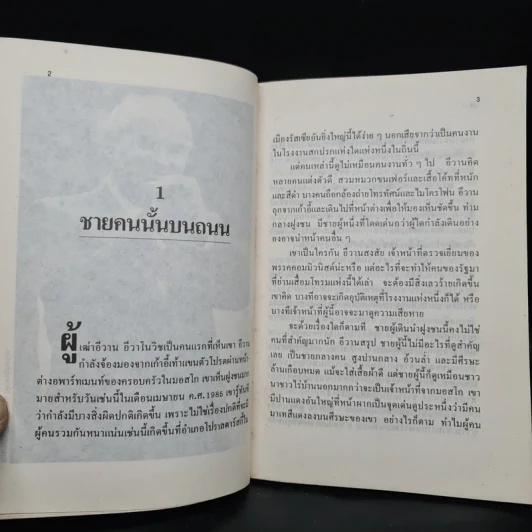 2
1
ชายคนนั้นบนถนน
ผู้เฒ่าอีวาน อีวาโนวิชเป็นคนแรกที่เห็นเขา อีวาน
กำลังจ้องมองจากเก้าอี้เท้าแขนตัวโปรดผ่านหน้า
ต่างอพาร์ทเมนท์ของครอบครัวในมอสโก เขาเห็นฝูงชนมาก
มายสำหรับวันเช่นนี้ในเดือนเมษายน ค.ศ.1985 เขารู้ทันที
ว่ากำลังมีบางสิ่งผิดปกติเกิดขึ้น เพราะไม่ใช่เรื่องปกติที่จะมี
ผู้คนรวมกันหนาแน่นเช่นนี้เกิดขึ้นที่อำเภอโปรเลตาร์สกี้ใน
3
เมืองรัสเซียอันยิ่งใหญ่นี้ได้ง่าย ๆ นอกเสียจากว่าเป็นคนงาน
ในโรงงานสกปรกแห่งใดแห่งหนึ่งในถิ่นนี้
แต่คนเหล่านี้ดูไม่เหมือนคนงานทั่ว ๆ ไป อีวานคิด
หลายคนแต่งตัวดี สวมหมวกขนเฟอร์และเสื้อโค้ทที่หนัก
และสีดำ บางคนถือกล้องถ่ายโทรทัศน์และไมโครโฟน อีวาน
ลุกจากเก้าอี้และเดินไปที่หน้าต่างเพื่อให้มองเห็นชัดขึ้น ท่าม
กลางฝูงชน มีชายผู้หนึ่งที่โดดเด่นกว่าผู้ใดกำลังเดินอย่าง
องอาจนำหน้าคนอื่น ๆ
เขาเป็นใครกัน อีวานสงสัย เจ้าหน้าที่ตรวจเยี่ยมของ
พรรคคอมมิวนิสต์น่ะหรือ แต่อะไรที่จะทำให้คนของรัฐมา
ที่ย่านเสื่อมโทรมแห่งนี้ได้เล่า จะต้องมีสิ่งเลวร้ายเกิดขึ้น
เขาคิด บางทีอาจจะเกิดอุบัติเหตุที่โรงงานแห่งหนึ่งก็ได้ หรือ
บางทีเจ้าหน้าที่ผู้นี้อาจจะมาดูความเสียหาย
จะด้วยเรื่องใดก็ตามที ชายผู้เดินนำฝูงชนนี้คงไม่ใช่
คนที่สำคัญมากนัก อีวานสรุป ชายผู้นี้ไม่มีอะไรที่ดูสำคัญ
เลย เป็นชายกลางคน สูงปานกลาง อ้วนล่ำ และมีศีรษะ
ล้านเกือบหมด แม้จะใส่เสื้อผ้าดี แต่ชายผู้นี้ก็ดูเหมือนชาว
นาชาวไร่บ้านนอกมากกว่าจะเป็นเจ้าหน้าที่จากมอสโก เขา
มีปานแดงอันใหญ่ที่หน้าผากเป็นจุดเด่นดูประหนึ่งว่ามีคน
มาเทสีแดงลงบนศีรษะของเขา อย่างไรก็ตาม ทำไมผู้คน